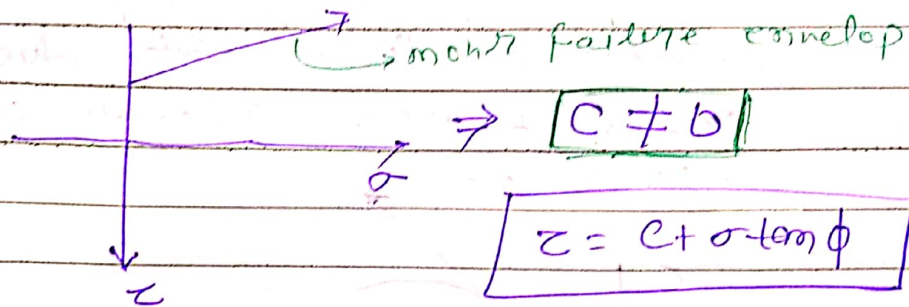 mohr failure envelop
⇒ C ≠ 0
σ
τ = C + σ tan ϕ
τ